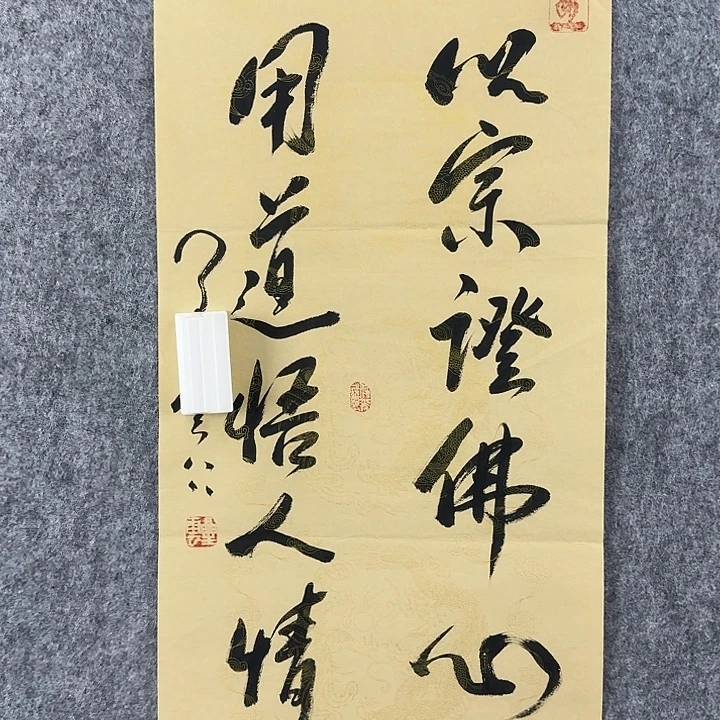 以宗證佛心
用道悟人情